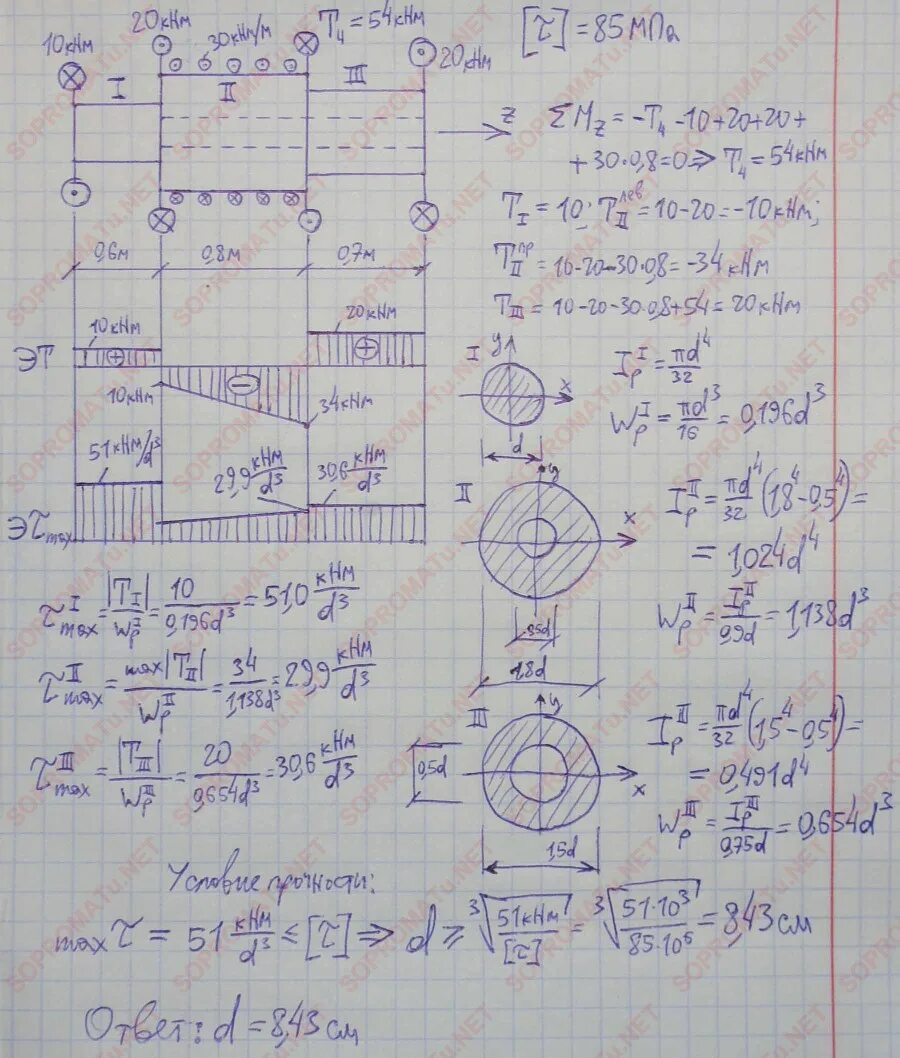 10кНм
20кНм
30кН/м
T₄ = 54кНм
20кНм
[τ] = 85МПа
I
II
III
z
ΣM_z = -T₄ - 10 + 20 + 20 +
+ 30·0,8 = 0 ⇒ T₄ = 54кНм
T_I = 10; T_II^лев = 10 - 20 = -10кНм;
T_II^пр = 10 - 20 - 30·0,8 = -34кНм
T_III = 10 - 20 - 30·0,8 + 54 = 20кНм
0,6м
0,8м
0,7м
ЭТ
10кНм
20кНм
10кНм
34кНм
Эτ_max
51кНм/d³
29,9 кНм/d³
30,6 кНм/d³
I
y
x
d
I_p^I = πd⁴/32
W_p^I = πd³/16 = 0,196d³
II
y
x
0,5d
1,8d
I_p^II = πd⁴/32 (1,8⁴ - 0,5⁴) =
= 1,024d⁴
W_p^II = I_p^II/0,9d = 1,138d³
III
y
x
0,5d
1,5d
I_p^III = πd⁴/32 (1,5⁴ - 0,5⁴) =
= 0,491d⁴
W_p^III = I_p^III/0,75d = 0,654d³
τ_max^I = |T_I|/W_p^I = 10/0,196d³ = 51,0 кНм/d³
τ_max^II = max|T_II|/W_p^II = 34/1,138d³ = 29,9 кНм/d³
τ_max^III = |T_III|/W_p^III = 20/0,654d³ = 30,6 кНм/d³
Условие прочности:
max τ = 51 кНм/d³ ≤ [τ] ⇒ d ≥ ³√(51кНм/[τ]) = ³√(51·10³/85·10⁶) = 8,43 см
Ответ: d = 8,43 см
SOPROMATu.NET